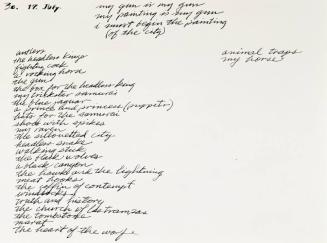 30. 17. July.
my gun is my gun
my painting is my gun
i must begin the painting
(of the city)
antlers
the headless kings
fighting cock
a rocking horse
the gun
the box for the headless king
my trickster samurai
the blue jaguar
a prince and princess (puppeter)
hats for the samurai
shoes with spikes
my raven
the silhouetted city
headless snake
walking stick
the black wolves
a black canyon
the hawk and the lightning
meat hooks
the coffin of contempt
windsocks
truth and history
the church of las trampas
the tombstone
marat
the heart of the
animal traps
my horses